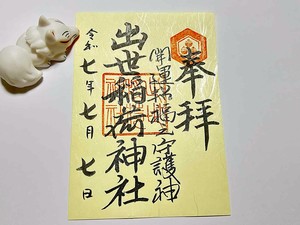 奉拝
開運招福之守護神
出世稲荷神社
令和七年七月七日